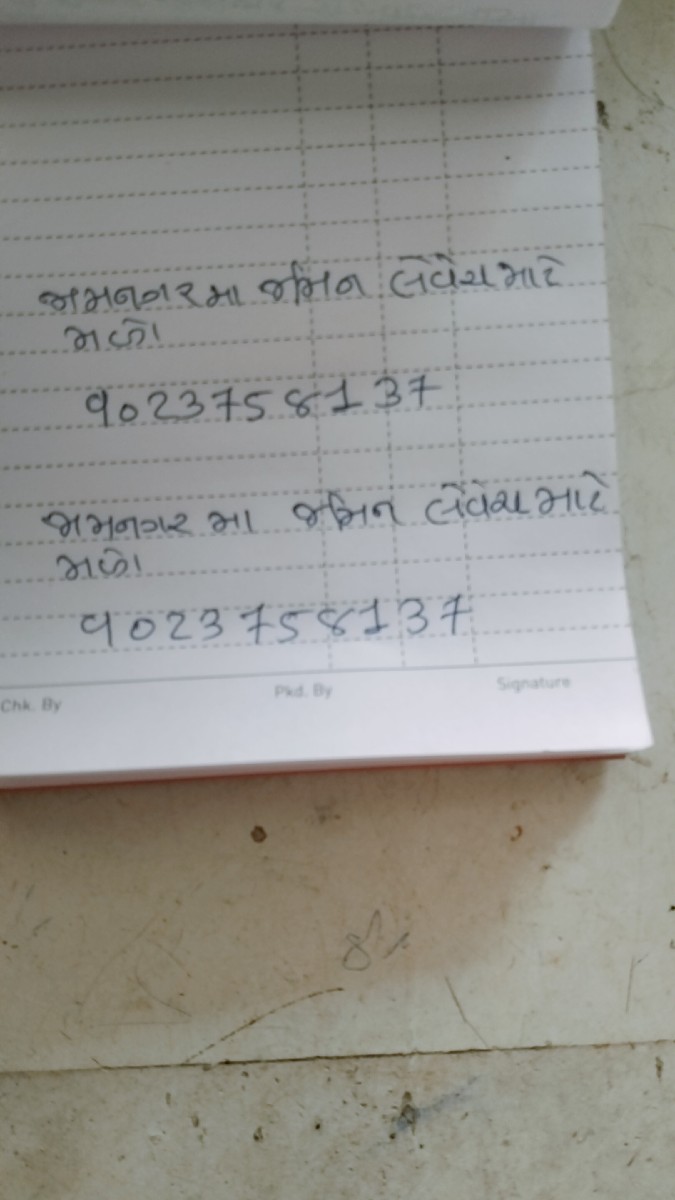 જામનગરમા જમિન લેવેચ માટે
મળો
9023758137
જામનગર મા જમિન લેવેચ માટે
મળો
9023758137
Chk. By Pkd. By Signature